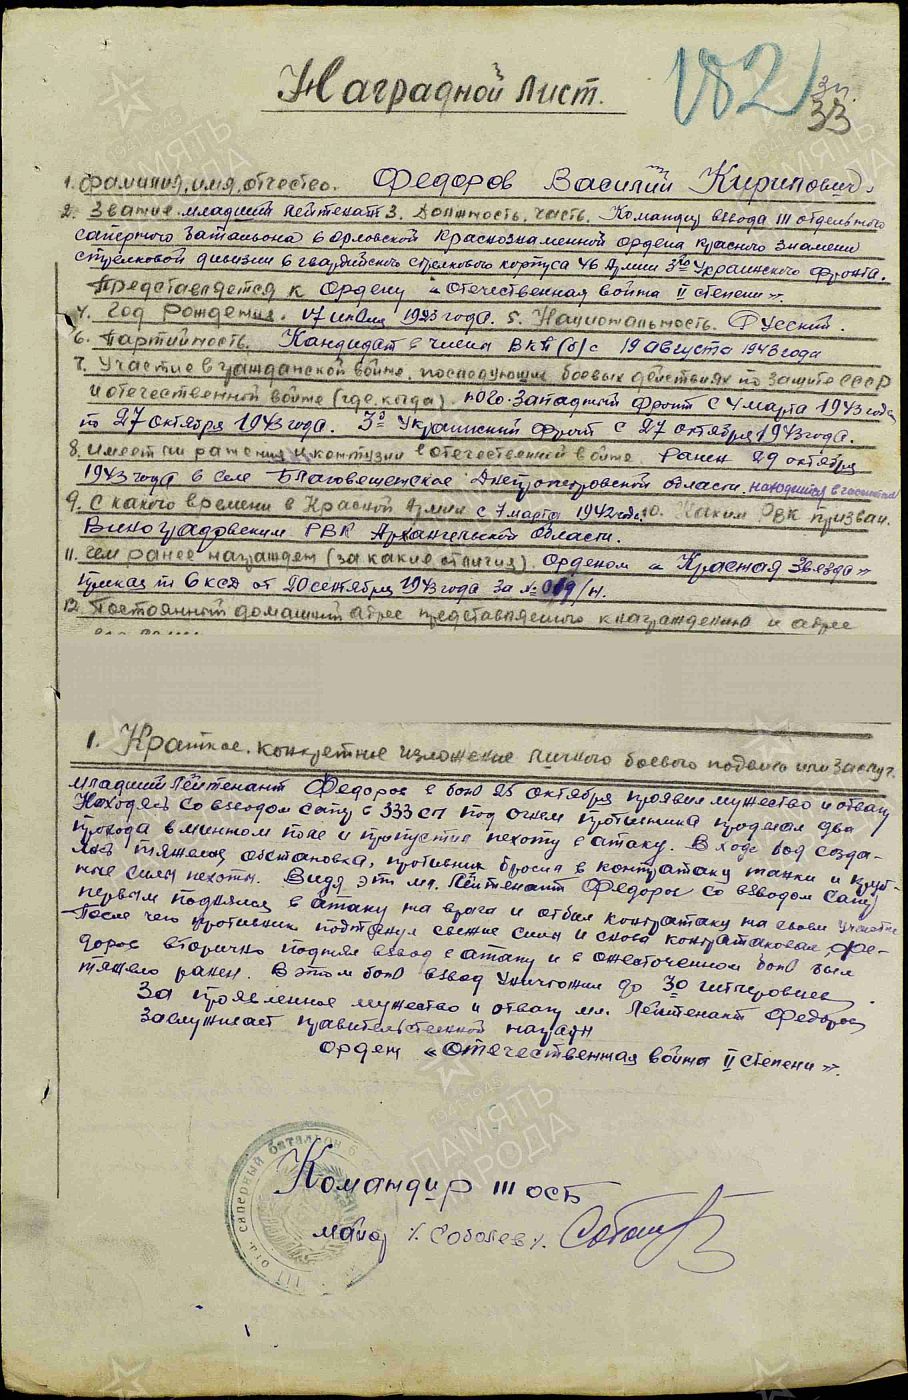 Наградной лист.
182
33
1. Фамилия, имя, отчество. Федоров Василий Кирилович.
2. Звание. младший лейтенант 3. Должность, часть. Командир взвода III отдельного
саперного батальона 6 Орловской Краснознаменной ордена красного знамени
стрелковой дивизии 6 гвардейского стрелкового корпуса 46 Армии 3го Украинского фронта.
Представляется к Ордену «Отечественная война II степени».
4. Год рождения. 17 июля 1923 года. 5. Национальность. Русский.
6. Партийность. Кандидат в члены ВКП(б) с 19 августа 1943 года
7. Участие в гражданской войне, последующих боевых действиях по защите СССР
и отечественной войне (где, когда). Юго-Западный фронт с 4 марта 1943 года
по 27 октября 1943 года. 3й Украинский фронт с 27 октября 1943 года.
8. Имеет ли ранения и контузии в отечественной войне. Ранен 29 октября
1943 года в селе Благовещенское Днепропетровской области. находится в госпитале
9. С какого времени в Красной Армии с 7 марта 1942 года. 10. Каким РВК призван.
Виноградовским РВК Архангельской области.
11. Чем ранее награжден (за какие отличия). Орденом «Красная Звезда»
приказ по 6 ксд от 20 сентября 1943 года за № 019/н.
12. Постоянный домашний адрес представляемого к награждению и адрес
его семьи
1. Краткое, конкретное изложение личного боевого подвига или заслуг.
Младший Лейтенант Федоров в бою 25 октября проявил мужество и отвагу
Находясь со взводом сапер в 333 сп под огнем противника проделал два
прохода в минном поле и пропустил пехоту в атаку. В ходе боя созда-
лась тяжелая обстановка, противник бросил в контратаку танки и круп-
ные силы пехоты. Видя это мл. Лейтенант Федоров со взводом сапер
первым поднялся в атаку на врага и отбил контратаку на своем участке
После чего противник подтянул свежие силы и снова контратаковал, Фе-
доров вторично поднял взвод в атаку и в ожесточенном бою был
тяжело ранен. В этом бою взвод уничтожил до 30 гитлеровцев.
За проявленное мужество и отвагу мл. Лейтенант Федоров
заслуживает правительственной награды
орден «Отечественная война II степени».
Командир III осб
майор /Соболев/.
саперный батальон 6
ПАМЯТЬ НАРОДА